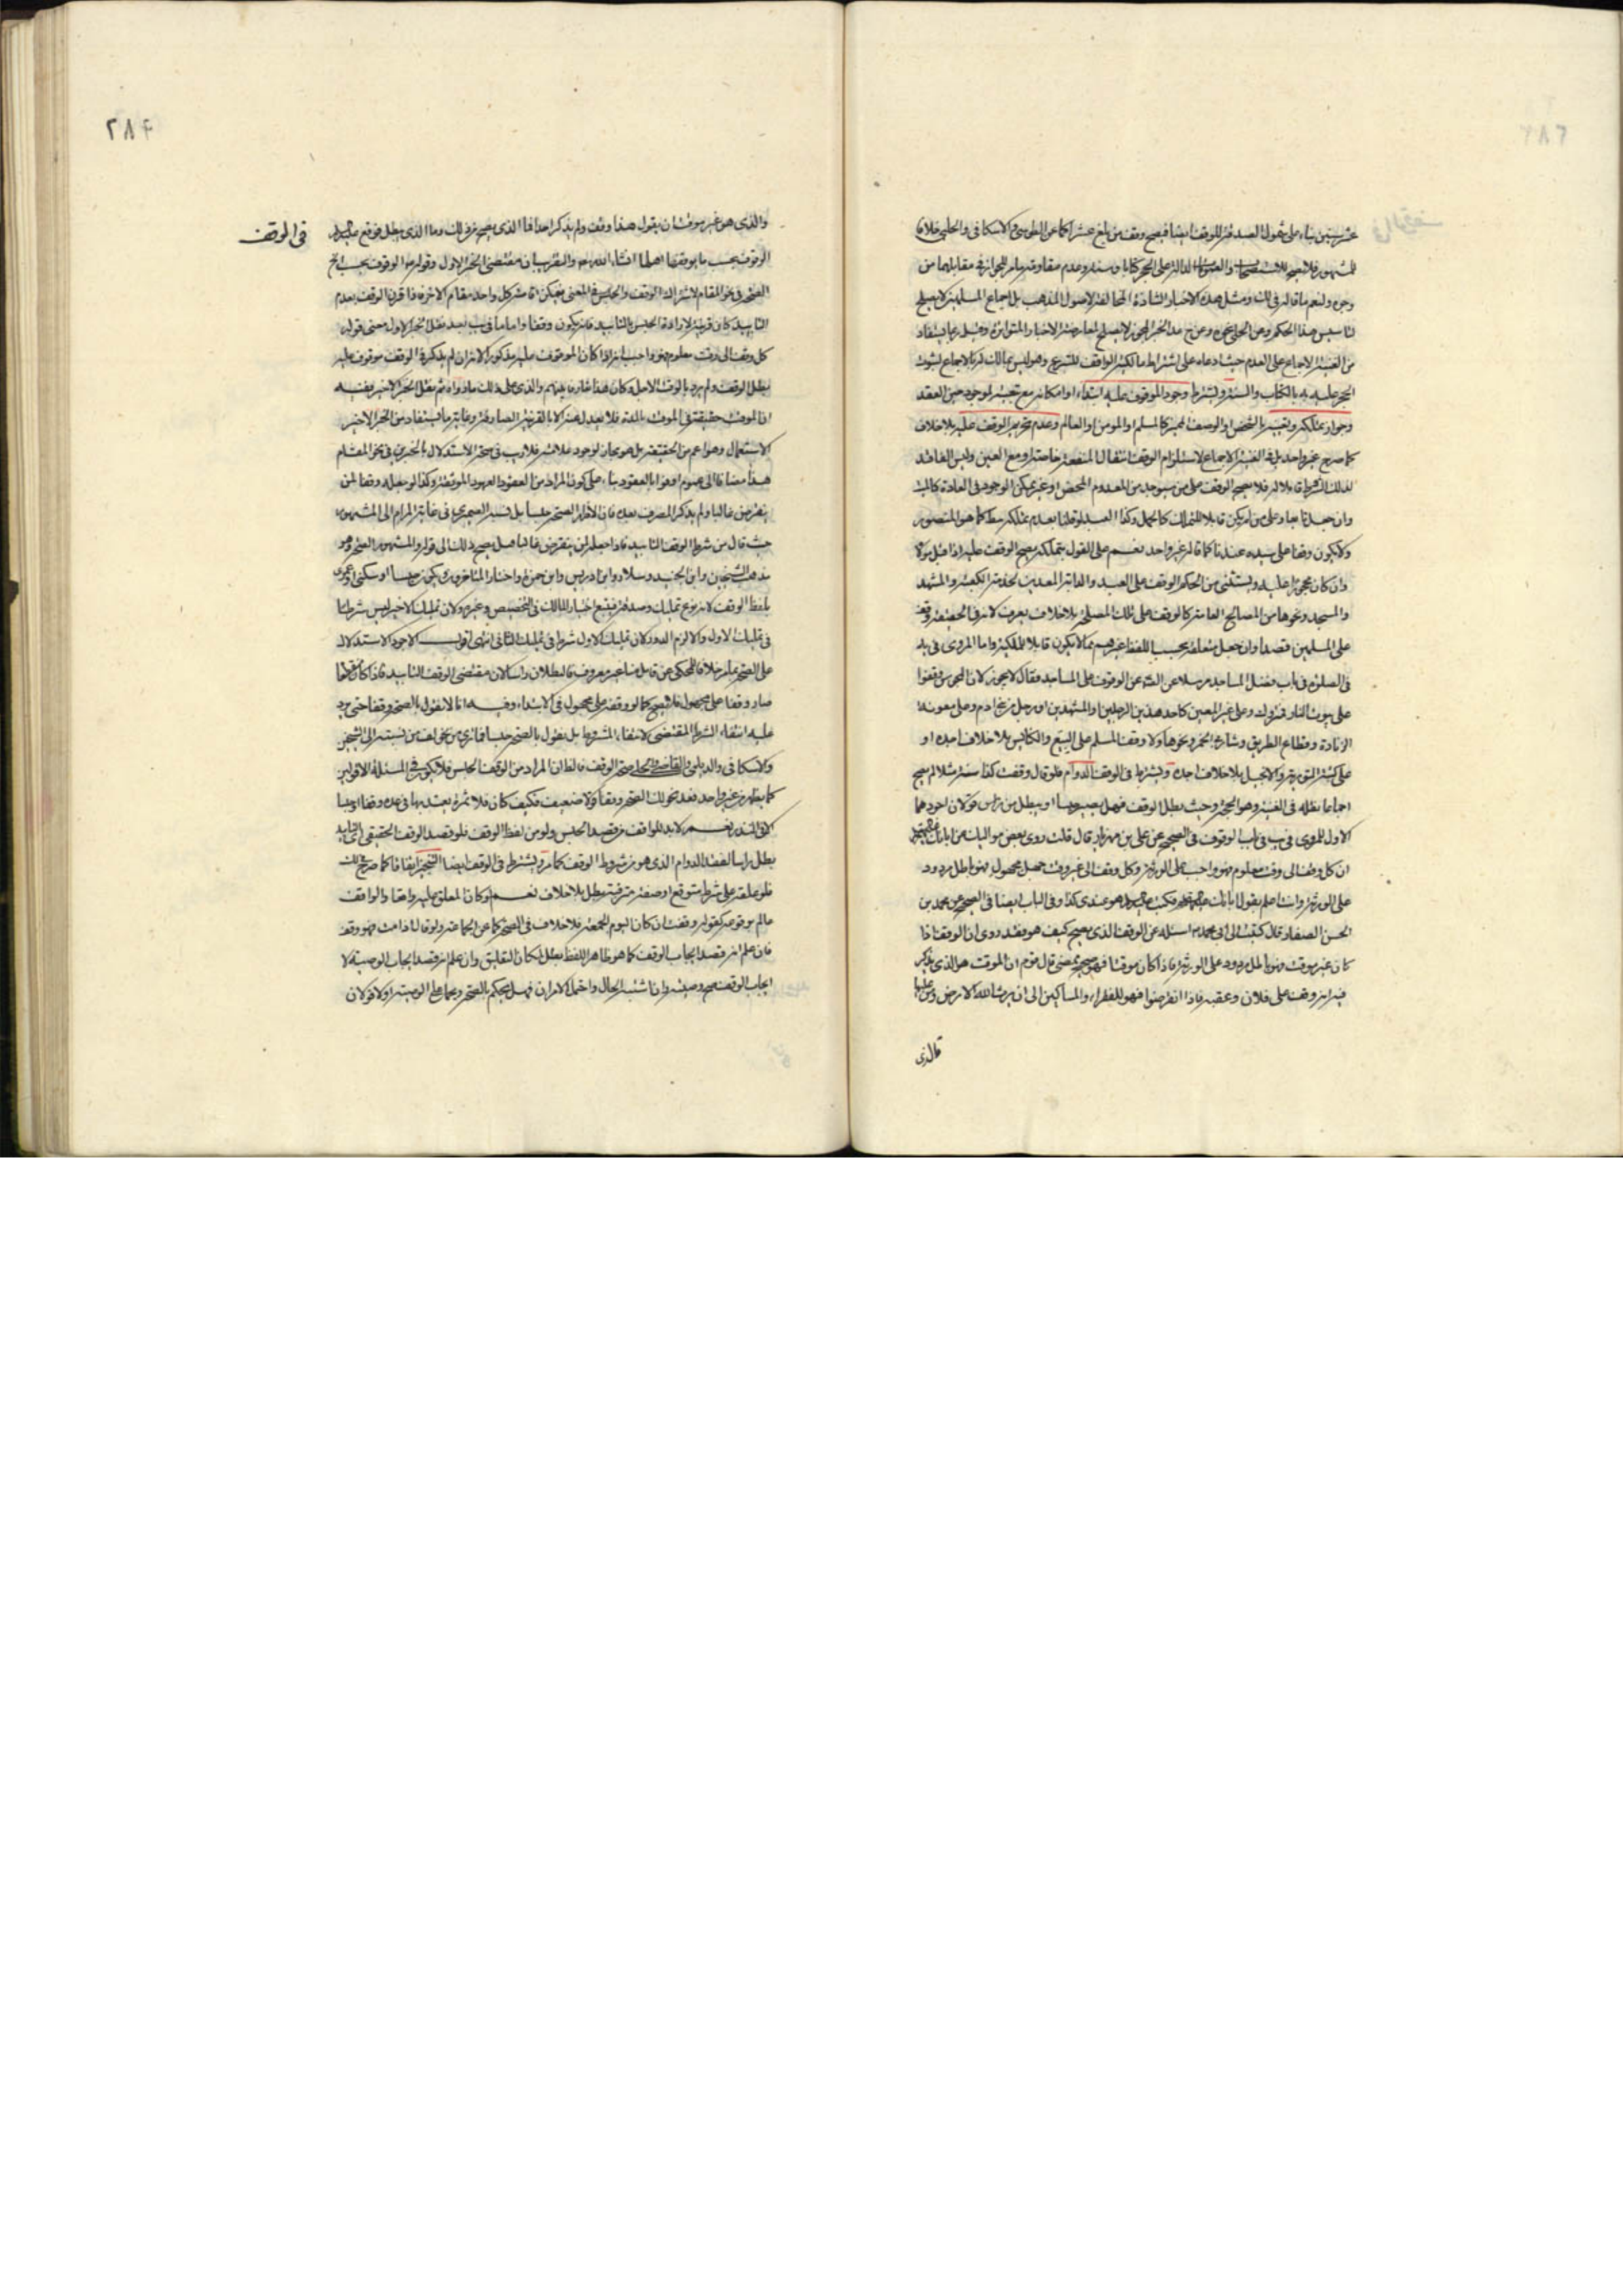 عشر سنين بناء على شمول الصدقة للوقف ايضا فيصح وقف من بلغ عشرا كما عن الطوسي والاسكافي والحلبي خلافا
للمشهور فلا يصح للاستصحاب والعمومات الدالة على الحجر كتابا وسنة وعدم مقاومة ما مر للجواز في مقابلهما من
وجوه ولنعم ما قاله في لك ومثل هذه الاخبار الشاذة المخالفة لاصول المذهب بل اجماع المسلمين لا يصلح
لتاسيس هذا الحكم وعن الحلي نحوه وعن ان هذا الخبر لا يصلح لمعارضة الاخبار المتواترة وقيل ربما يستفاد
من الغنية الاجماع على العدم حيث ادعاه على اشتراط مالكية الواقف للتبرع وهو ليس بمالك له بالاجماع لثبوت
الحجر عليه به بالكتاب والسنة ويشترط وجود الموقوف عليه ابتداء او امكانه مع تبعيته لموجود حين العقد
وجواز تملكه وتعيينه بالشخص او الوصف المميز كالمسلم او المومن او العالم وعدم تحريم الوقف عليه بلا خلاف
كما صرح غير واحد بل في الغنية الاجماع لاستلزام الوقف انتقال المنفعة خاصة او مع العين وليس الفاقد
لذلك الشرط قابلا له فلا يصح الوقف على من سيوجد من المعدوم المحض او غير ممكن الوجود في العادة كالميت
وان جعل تابعا وعلى من لم يكن قابلا للتملك كالحمل وكذا العبد لو قلنا بعدم تملكه مطلقا كما هو المنصور
ولا يكون وقفا على سيده عندنا كما قاله غير واحد نعم على القول بتملكه يصح الوقف عليه اذا قبل مولاه
وان كان محجورا عليه ويستثنى من الحكم الوقف على العبد والدابة المعدين لخدمة الكعبة والمشهد
والمسجد ونحوها من المصالح العامة كالوقف على تلك المصلحة بلا خلاف يعرف لانه في الحقيقة وقف
على المسلمين قصدا وان جعل متعلقه بحسب اللفظ غيرهم مما لا يكون قابلا للملكية واما المروي في يه
في الصلوة في باب فضل المساجد مرسلا عن الص عن الوقوف على المساجد فقال لا يجوز لان المجوس وقفوا
على بيوت النار وعلى غير المعين كاحد هذين الرجلين او المشهدين او رجل من بني ادم وعلى معونة
الزناة وقطاع الطريق وشاربي الخمر ونحوها ولا وقف المسلم على البيع والكنايس بلا خلاف اجده او
على كتب التورية والانجيل بلا خلاف اجده ويشترط في الوقف الدوام فلو قال وقفت كذا سنة مثلا لم يصح
اجماعا نقله في الغنية وهو الحجة وحيث بطل الوقف فهل يصير حبسا او يبطل من راس قولان اجودهما
الاول للمروي في يب في باب الوقوف في الصحيح عن علي بن مهزيار قال قلت روى بعض مواليك عن ابائك
ان كل وقف الى وقت معلوم فهو واجب على الورثة وكل وقف الى غير وقت جهل مجهول فهو باطل مردود
على الورثة وانت اعلم بقول ابائك فكتب هو عندي كذا وفي الباب ايضا في الصحيح عن محمد بن
الحسن الصفار قال كتبت الى ابي محمد اسئله عن الوقف الذي يصح كيف هو فقد روى ان الوقف اذا
كان غير موقت فهو باطل مردود على الورثة فاذا كان موقتا فهو صحيح ممضى قال قوم ان الموقت هو الذي يذكر
فيه انه وقف على فلان وعقبه فاذا انقرضوا فهو للفقراء والمساكين الى ان يرث الله الارض ومن عليها
والذي
٢٨٤
في الوقف
والذي هو غير موقت ان يقول هذا وقف ولم يذكر احدا فما الذي يصح من ذلك وما الذي يبطل فوقع
الوقوف بحسب ما يوقفها اهلها انشاء الله والتقريب ان مقتضى الخبر الاول وقوله الوقوف بحسب الخ
الصحة في نحو المقام لاشتراك الوقف والحبس في المعنى فيمكن اقامة كل واحد مقام الاخر فاذا قرن الوقف بعدم
التابيد كان قرينة لارادة الحبس بالتابيد فانه يكون وقفا واما ما في يب بعد نقل الخبر الاول معنى قوله
كل وقف الى وقت معلوم فهو واجب انه اذا كان الموقوف عليه مذكورا لانه ان لم يذكر في الوقف موقوف عليه
بطل الوقف ولم يرد بالوقت الاجل وكان هذا تعارفا بينهم والذي على ذلك ما رواه ثم نقل الخبر الاخير ففيه
ان الموقت حقيقة في الموقت بالمدة فلا يعدل عنه الا بالقرينة الصارفة وغاية ما يستفاد من الخبر الاخير
الاستعمال وهو اعم من الحقيقة بل هو مجاز لوجود علائمه فلا ريب في صحة الاستدلال بالخبرين في نحو المقام
هذا مضافا الى عموم اوفوا بالعقود بناء على كون المراد من العقود العهود الموثقة وكذا لو جعله وقفا لمن
ينقرض غالبا ولم يذكر المصرف بعده فان الاظهر الصحة حبسا بل نسبه الصيمري في غاية المرام الى المشهور
حيث قال من شرط الوقف التابيد فاذا جعله لمن ينقرض غالبا هل يصح ذلك الى قوله والمشهور الصحة وهو
مذهب الشيخين وابن الجنيد وسلار وابن ادريس وابن حمزة واختاره المتاخرون ويكون حبسا او سكنى او عمرى
بلفظ الوقف لانه نوع تمليك وصدقة فيتبع اختيار المالك في التخصيص وغيره ولان تمليك الاخير ليس شرطا
في تمليك الاول والا لزم الدور لان تمليك الاول شرط في تمليك الثاني انتهى اقول الاجود الاستدلال
على الصحة بما مر خلافا للمحكي عن قائل منا غير معروف فالبطلان راسا لان مقتضى الوقف التابيد فاذا كان منقطعا
صار وقفا على مجهول فلا يصح كما لو وقفه على مجهول في الابتداء وفيه انا لا نقول بالصحة وقفا حتى يرد
عليه انتفاء الشرط المقتضي لانتفاء المشروط بل نقول بالصحة حبسا فما ترى من نسبته الى الشيخين
والاسكافي والديلمي والقاضي والحلي صحة الوقف فالظ ان المراد من الوقف الحبس فلا يكون في المسئلة الا قولين
كما يظهر من غير واحد فعد نحو لك الصحة وقفا قولا ضعيف وكيف كان فلا ثمرة يعتد بها في عده وقفا او حبسا
الا في النذر نعم لا بد للواقف من قصد الحبس ولو من لفظ الوقف فلو قصد الوقف الحقيقي اي التابيد
بطل راسا لفقد الدوام الذي هو من شروط الوقف كما مر ويشترط في الوقف ايضا التنجيز اتفاقا كما صرح لك
فلو علقه على شرط متوقع او صفة مترقبة بطل بلا خلاف نعم لو كان المعلق عليه واقعا والواقف
عالم بوقوعه كقوله وقفت ان كان اليوم الجمعة فلا خلاف في الصحة كما عن جماعة ولو قال اذا مت فهو وقف
فان علم انه قصد ايجاب الوقف كما هو ظاهر اللفظ بطل لمكان التعليق وان علم انه قصد ايجاب الوصية لا
ايجاب الوقف صح وصية وان اشتبه الحال واحتمل الامران فهل يحكم بالصحة ويحمل على الوصية او لا قولان